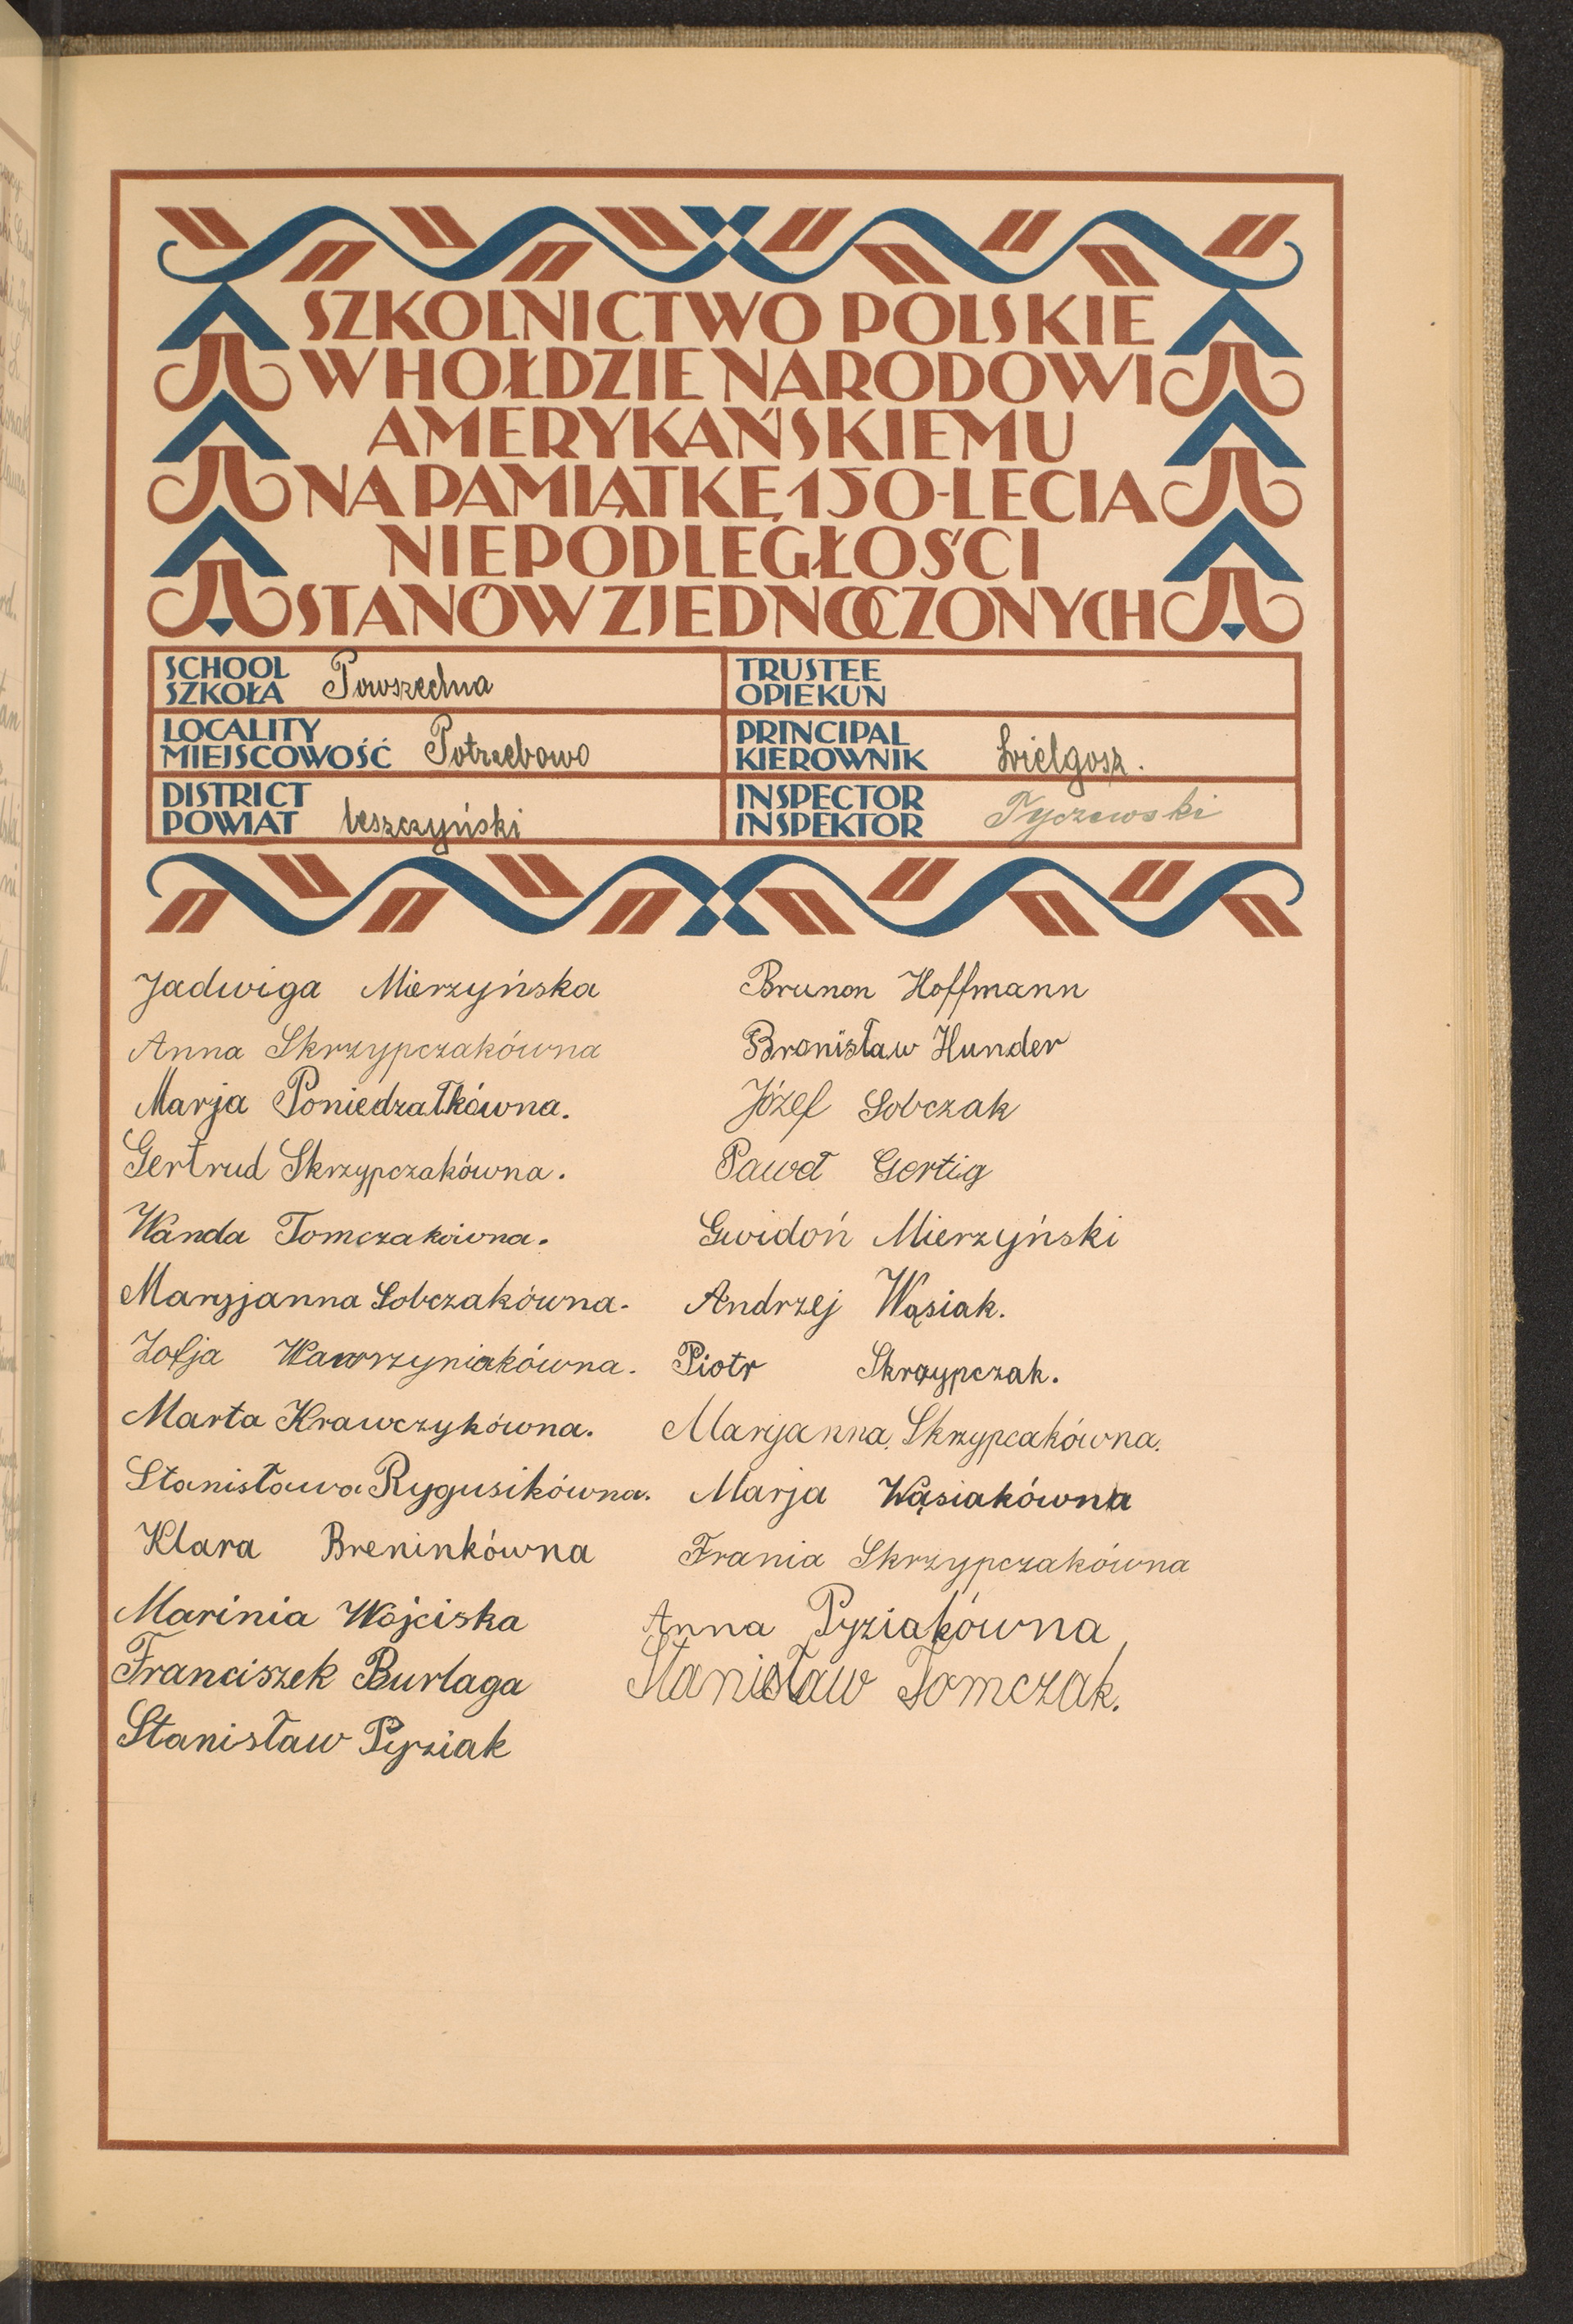 SZKOLNICTWO POLSKIE
W HOŁDZIE NARODOWI
AMERYKAŃSKIEMU
NA PAMIĄTKĘ 150-LECIA
NIEPODLEGŁOŚCI
STANÓW ZJEDNOCZONYCH
SCHOOL
SZKOŁA Powszechna
TRUSTEE
OPIEKUN
LOCALITY
MIEJSCOWOŚĆ Potrzebowo
PRINCIPAL
KIEROWNIK Wielgosz.
DISTRICT
POWIAT leszczyński
INSPECTOR
INSPEKTOR Tyczewski
Jadwiga Mierzyńska
Anna Skrzypczakówna
Marja Poniedzałkówna.
Gertrud Skrzypczakówna.
Wanda Tomczakówna.
Maryjanna Sobczakówna.
Zofja Wawrzyniakówna.
Marta Krawczykówna.
Stanisława Rygusikówna.
Klara Breninkówna
Marinia Wojciska
Franciszek Burlaga
Stanisław Pyziak
Brunon Hoffmann
Bronisław Hunder
Józef Sobczak
Paweł Gertig
Gwidoń Mierzyński
Andrzej Wąsiak.
Piotr Skrzypczak.
Marjanna Skrzypcakówna.
Marja Wąsiakówna
Frania Skrzypczakówna
Anna Pyziakówna
Stanisław Tomczak.